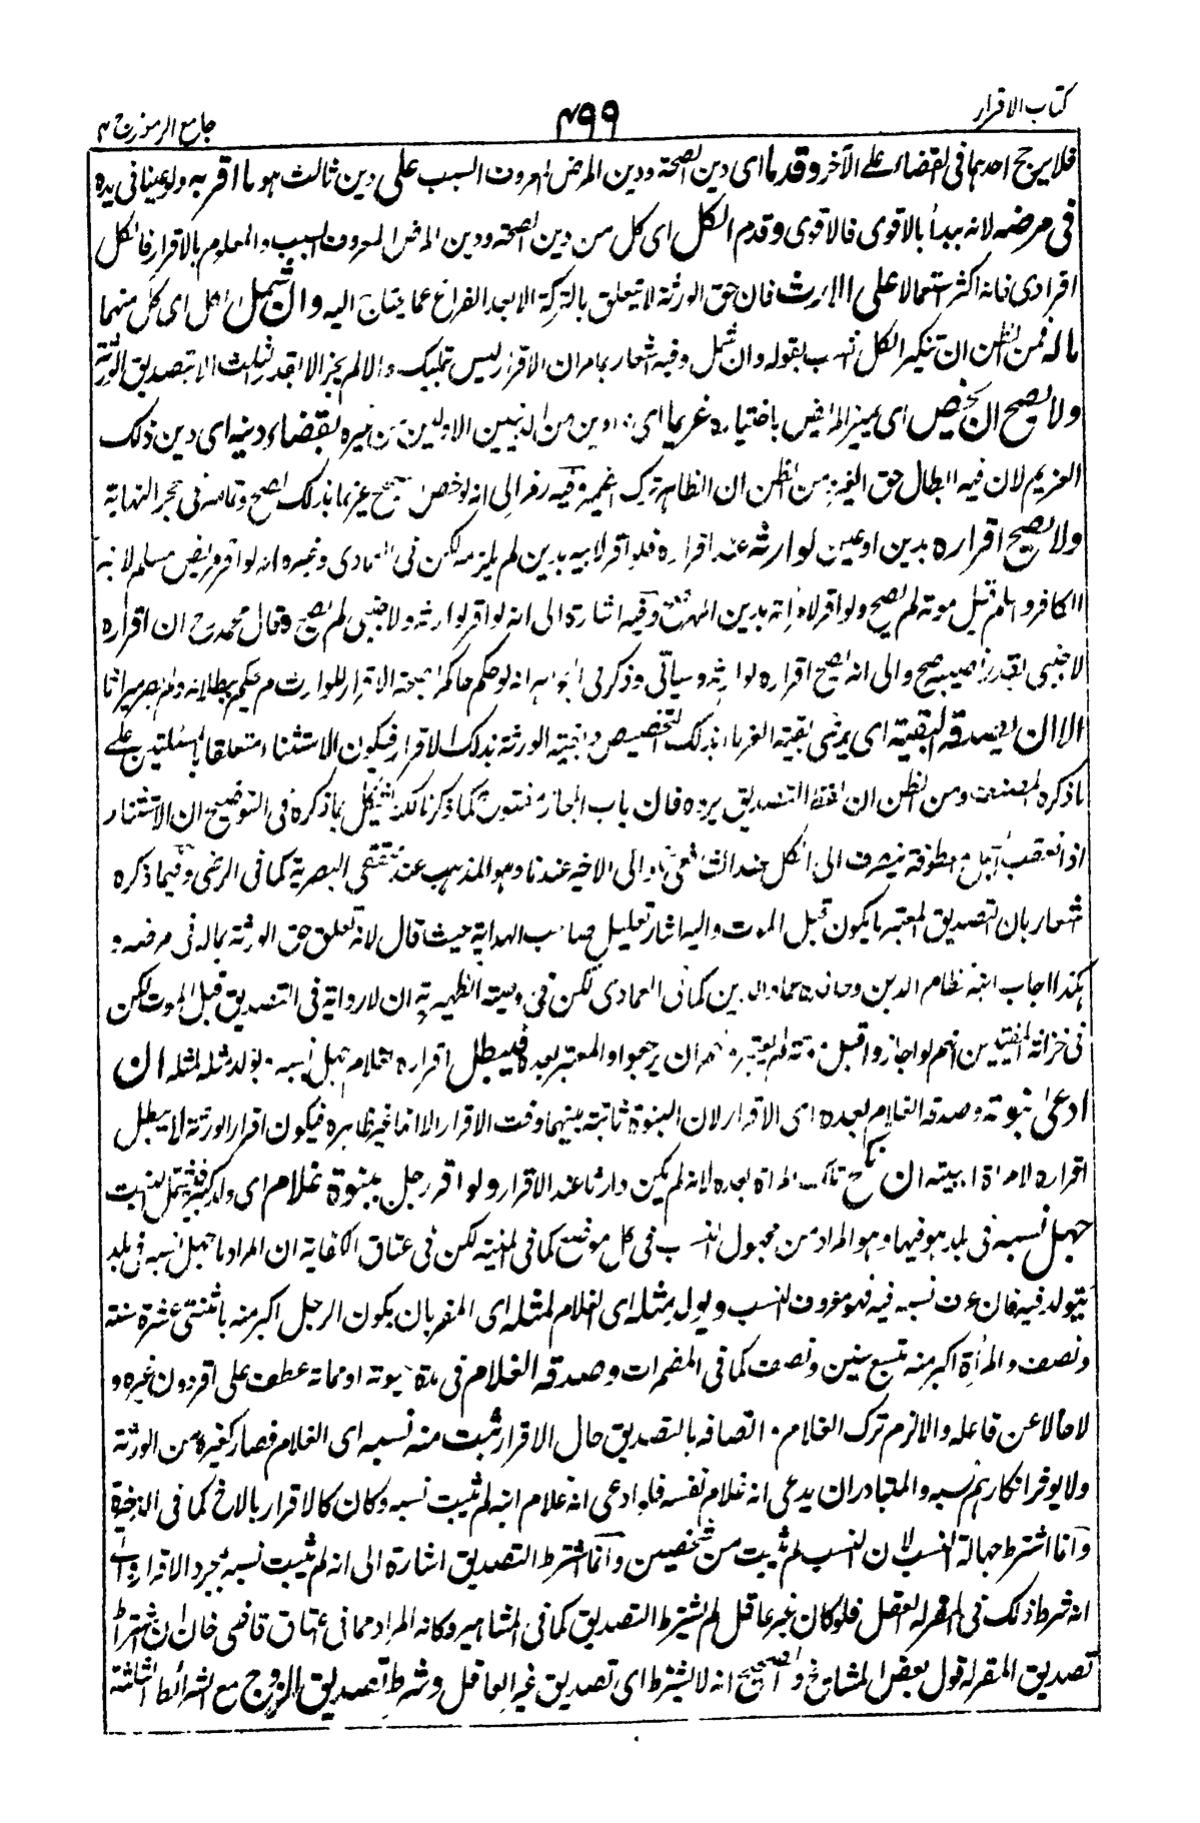 كتاب الاقرار
٤٩٩
جامع الرموز ج ٣
فلا يرجح احدهما فى القضاء على الآخر وقدما اى دين الصحة ودين المرض المعروف السبب على دين ثالث هو ما اقر به ولو عينا فى يده
فى مرضه لانه يبدأ بالاقوى فالاقوى وقدم الكل اى كل من دين الصحة ودين المرض المعروف السبب والمعلوم بالاقرار فالكل
افرادى فانه اكثر استعمالا على الارث فان حق الورثة لا يتعلق بالتركة الا بعد الفراغ عما يحتاج اليه وان شمل الكل اى كل منهما
ماله فمن الظن ان تنكير الكل انسب بقوله وان شمل وفيه اشعار بما مر ان الاقرار ليس تمليك والا لم يجز الا بقدر الثلث الا بتصديق الورثة
ولا يصح ان يخص اى يميز المريض باختياره غريما اى من الدينين الاولين من غيره بقضاء دينه اى دين ذلك
الغريم لان فيه ابطال حق الغير ومن الظن ان الظاهر ترك غيره وفيه رمز الى انه لو خص صحيح غريما بذلك لصح وتمامه فى حجر النهاية
ولا يصح اقراره بدين او عين لوارثه عند اقراره فلو اقر لابيه بدين لم يلزمه لكن فى العمادى وغيره انه لو اقر مريض مسلم لابنه
الكافر واسلم قبل موته لم يصح ولو اقر لامرأته بدين المهر صح وفيه اشارة الى انه لو اقر لوارثه ولاجنبى لم يصح وقال محمد رح ان اقراره
لاجنبى بقدر نصيبه صح والى انه يصح اقراره لوارثه وسيأتى وذكر فى الجواهر انه لو حكم حاكم بصحة الاقرار للوارث لم يحكم ببطلانه ولم يصر ميراثا
الا ان يصدقه البقية اى يرضى بقية الغرماء بذلك التخصيص وبقية الورثة بذلك الاقرار فيكون الاستثناء متعلقا بالمسئلتين على
ما ذكره المصنف ومن الظن ان لفظ التصديق يرده فان باب المجاز مفتوح كما ذكرنا لكنه يشكل بما ذكره فى التوضيح ان الاستثناء
اذا تعقب جملا معطوفة ينصرف الى الكل عند الشافعى والى الاخيرة عندنا وهو المذهب عند محققى البصرية كما فى الرضى وفيما ذكره
شعار بان التصديق المعتبر ما يكون قبل الموت واليه اشار تعليل صاحب الهداية حيث قال لانه تعلق حق الورثة بماله فى مرضه و
هكذا اجاب ابنه نظام الدين وحافده عماد الدين كما فى العمادى لكن فى وصية الظهيرية ان لا رواية فى التصديق قبل الموت لكن
فى خزانة المفتيين انهم لو اجازوا قبل موته لم يعتبر فلهم ان يرجعوا والمعتبر بعده فيبطل اقراره لغلام جهل نسبه يولد مثله لمثله ان
ادعى بنوته وصدقه الغلام بعده اى الاقرار لان البنوة ثابتة بينهما وقت الاقرار الا انها غير ظاهرة فيكون اقرار الورثة لا يبطل
اقراره لامرأة اجنبية ان نكح تلك المرأة بعده لانه لم يكن وارثا عند الاقرار ولو اقر رجل ببنوة غلام اى ولد كبير فيشتمل البنت
جهل نسبه فى بلد هو فيها وهو المراد من مجهول النسب فى كل موضع كما فى المنية لكن فى عتاق الكفاية ان المراد ما جهل نسبه فى بلد
يتولد فيه فان عرف نسبه فيه فهو معروف النسب ويولد مثله اى الغلام لمثله اى المقر بان يكون الرجل اكبر منه باثنتى عشرة سنة
ونصف والمرأة اكبر منه بتسع سنين ونصف كما فى المضمرات وصدقه الغلام فى مدة حيوته او مماته عطف على اقر دون غيره و
لا حالا عن فاعله والا لزم ترك الغلام اتصافه بالتصديق حال الاقرار ثبت منه نسبه اى الغلام فصار كغيره من الورثة
ولا يوفر انكارهم نسبه والمتبادر ان يدعى انه غلام نفسه فلو ادعى انه غلام ابنه لم يثبت نسبه وكان كالاقرار بالاخ كما فى الذخيرة
وانما اشترط جهالة النسب لان النسب لم يثبت من شخصين وانما اشترط التصديق اشارة الى انه لم يثبت نسبه بمجرد الاقرار والى
انه شرط ذلك فى المقر له العقل فلو كان غير عاقل لم يشترط التصديق كما فى المشاهير وكانه المراد مما فى عتاق قاضى خان ان اشتراط
تصديق المقر له قول بعض المشايخ والصحيح انه لا يشترط اى تصديق غير العاقل وشرط تصديق الزوج مع الشرائط الثلثة